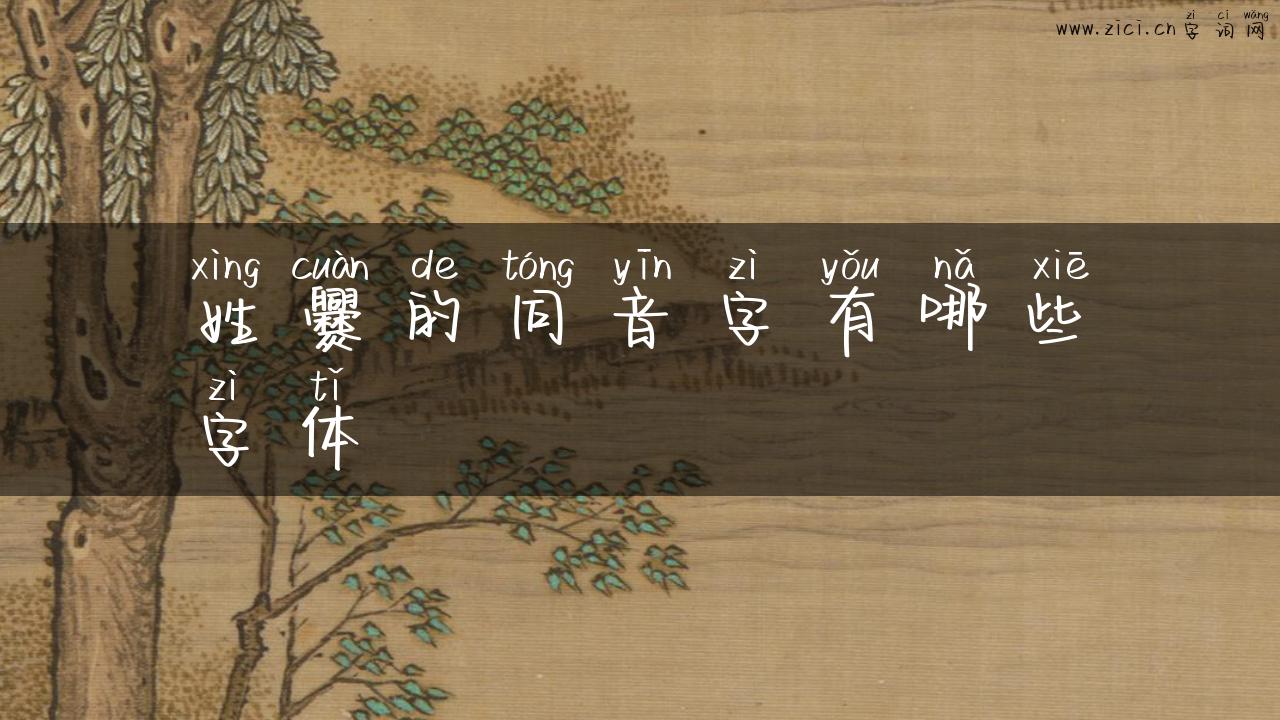 zì cí wǎng
www.zici.cn 字词网
xìng cuàn de tóng yīn zì yǒu nǎ xiē
姓爨的同音字有哪些
zì tǐ
字体